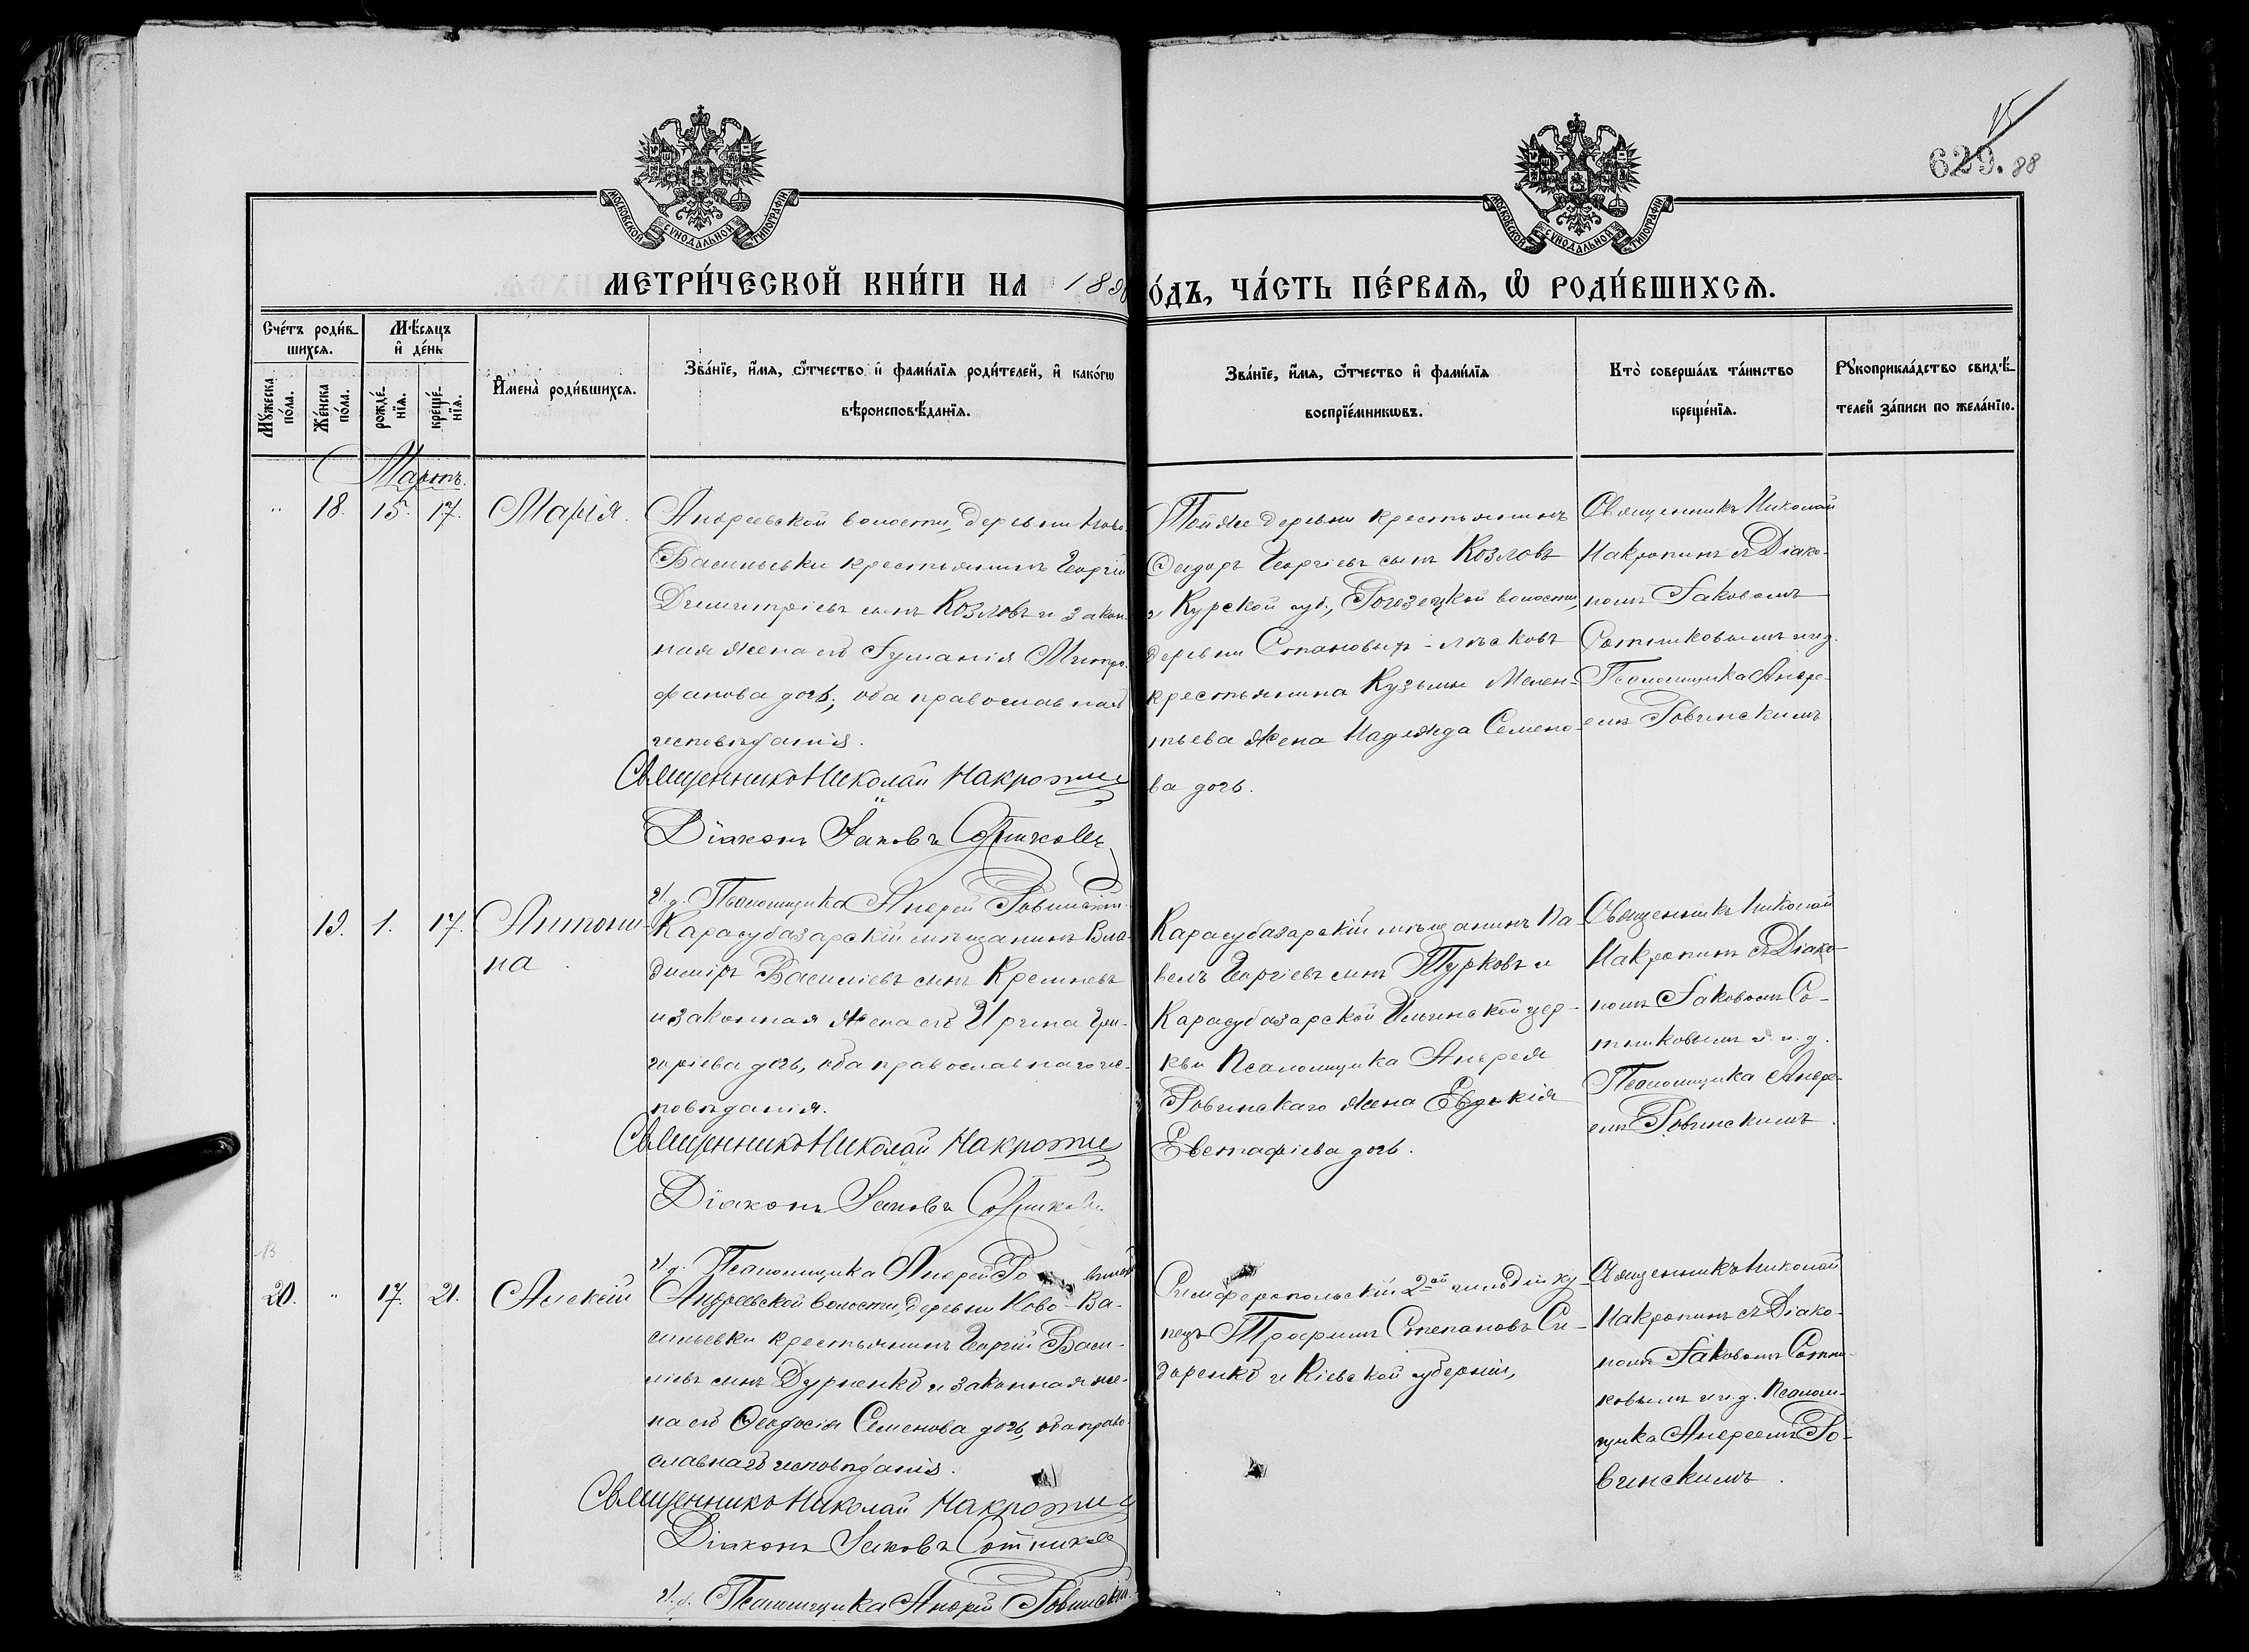 15
629. 88
МОСКОВСКОЙ СѴНОДАЛЬНОЙ ТИПОГРАФІИ
МОСКОВСКОЙ СѴНОДАЛЬНОЙ ТИПОГРАФІИ
МЕТРИ́ЧЕСКОЙ КНИ́ГИ НА 189
О́ДЪ, ЧА́СТЬ ПЕ́РВАѦ, Ѡ҆ РОДИ́ВШИХСѦ.
Сче́тъ роди́в-
шихсѧ.
Мѣ́сѧцъ
и҆ де́нь
Мꙋ́жеска
по́ла.
Же́нска
по́ла.
рожде́-
нїѧ.
креще́-
нїѧ.
И҆мена̀ роди́вшихсѧ.
Зва́нїе, и҆́мѧ, ѻ҆́тчество и҆ фами́лїѧ роди́телей, и҆ како́гѡ
вѣроисповѣ́данїѧ.
Зва́нїе, и҆́мѧ, ѻ҆́тчество и҆ фами́лїѧ
воспрїе́мникѡвъ.
Кто̀ соверша́лъ та́инство
креще́нїѧ.
Рꙋкоприкла́дство свидѣ́-
телей за́писи по жела́нїю.
Мартъ.
" 18. 15. 17. Марія.
Андреевской волости, деревни Ново
Васильевки крестьянинъ Георгій
Димитріевъ сынъ Козловъ и закон-
ная жена его Митро-
фанова дочь, оба православнаго
исповѣданія.
Священникъ Николай Накропинъ
Діаконъ Іаковъ Сотниковъ
И. д. Псаломщика Андрей Ровинскій
Той же деревни крестьянинъ
Ѳеодоръ Георгіевъ сынъ Козловъ
и Курской губ., волости,
деревни
крестьянина Кузьмы Мелен-
тьева жена Надежда Семено-
ва дочь.
Священникъ Николай
Накропинъ съ Діако-
номъ Іаковомъ
Сотниковымъ и и. д.
Псаломщика Андре-
емъ Ровинскимъ
19. 1. 17. Антони-
на
Карасубазарскій мѣщанинъ Вла-
диміръ Василіевъ сынъ Кремневъ
и законная жена его Ирина Гри-
горіева дочь, оба православнаго ис-
повѣданія.
Священникъ Николай Накропинъ
Діаконъ Іаковъ Сотниковъ
И. д. Псаломщика Андрей Ровинскій
Карасубазарскій мѣщанинъ Па-
велъ Георгіевъ сынъ Турковъ и
Карасубазарской Ильинской цер-
кви Псаломщика Андрея
Ровинскаго жена Евдокія
Евстафіева дочь.
Священникъ Николай
Накропинъ съ Діако-
номъ Іаковомъ Со-
тниковымъ и и. д.
Псаломщика Андре-
емъ Ровинскимъ.
20. " 17. 21. Алексій
Андреевской волости, деревни Ново-Ва-
сильевки крестьянинъ Георгій Васи-
ліевъ сынъ Дурненко и законная же-
на его Ѳеодосія Семенова дочь, оба право-
славнаго исповѣданія.
Священникъ Николай Накропинъ
Діаконъ Іаковъ Сотниковъ
И. д. Псаломщика Андрей Ровинскій
Симферопольскій 2ой гильдіи ку-
пецъ Трофимъ Степановъ Си-
доренко и Кіевской губерніи,
Священникъ Николай
Накропинъ съ Діако-
номъ Іаковомъ Сотни-
ковымъ и и. д. Псалом-
щика Андреемъ Ро-
винскимъ.